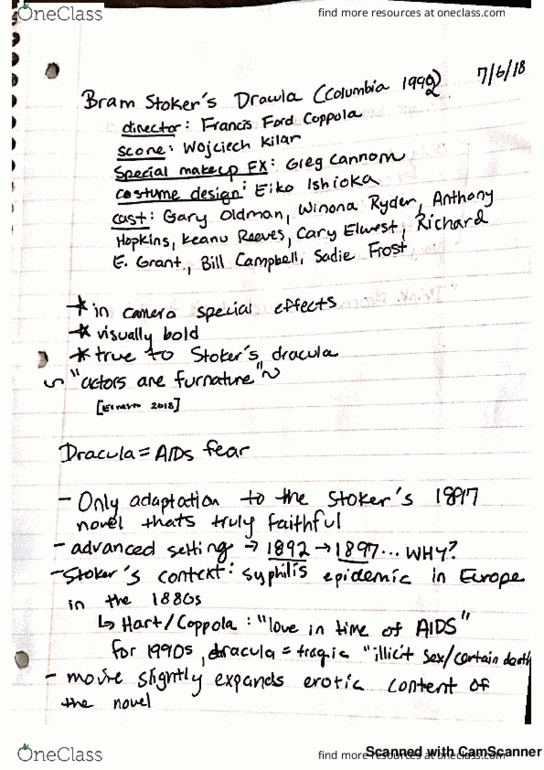 OneClass
find more resources at oneclass.com
7/6/18
Bram Stoker's Dracula (Columbia 1992)
director: Francis Ford Coppola
score: Wojciech Kilar
Special makeup FX: Greg Cannom
costume design: Eiko Ishioka
cast: Gary Oldman, Winona Ryder, Anthony
Hopkins, Keanu Reeves, Cary Elwest, Richard
E. Grant, Bill Campbell, Sadie Frost
* in camera special effects
* visually bold
* true to Stoker's dracula
~ "actors are furnature" ~
2018]
Dracula = AIDs fear
- Only adaptation to the Stoker's 1897
novel thats truly faithful
- advanced setting → 1892 → 1897... WHY?
- Stoker's context: syphilis epidemic in Europe
in the 1880s
↳ Hart/Coppola: "love in time of AIDS"
for 1990s, dracula = tragic "illicit sex/certain death
- movie slightly expands erotic content of
the novel
OneClass
find more resources at oneclass.com
Scanned with CamScanner